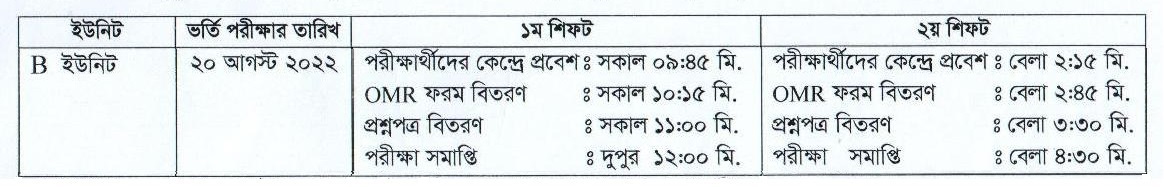 ইউনিট ভর্তি পরীক্ষার তারিখ ১ম শিফট ২য় শিফট
B ইউনিট ২০ আগস্ট ২০২২ পরীক্ষার্থীদের কেন্দ্রে প্রবেশ ঃ সকাল ০৯:৪৫ মি. পরীক্ষার্থীদের কেন্দ্রে প্রবেশ ঃ বেলা ২:১৫ মি.
OMR ফরম বিতরণ ঃ সকাল ১০:১৫ মি. OMR ফরম বিতরণ ঃ বেলা ২:৪৫ মি.
প্রশ্নপত্র বিতরণ ঃ সকাল ১১:০০ মি. প্রশ্নপত্র বিতরণ ঃ বেলা ৩:৩০ মি.
পরীক্ষা সমাপ্তি ঃ দুপুর ১২:০০ মি. পরীক্ষা সমাপ্তি ঃ বেলা ৪:৩০ মি.